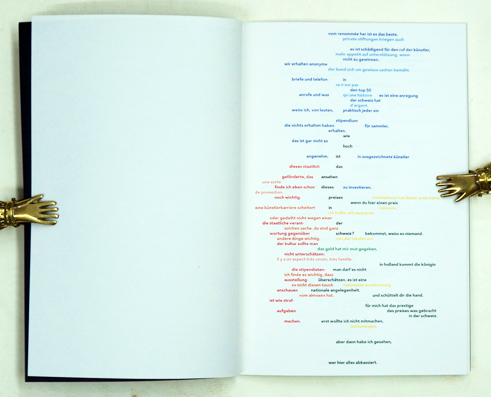 vom renommée her ist es das beste.
private stiftungen kriegen auch
es ist schädigend für den ruf der künstler,
mehr appetit auf unterstützung, wenn
nicht zu gewinnen.
wir erhalten anonyme
der bund sich um gewisse sachen bemüht.
briefe und telefon in
den top 50
anrufe und was qu'une histoire es ist eine anregung
der schweiz hat
d'argent.
weiss ich, von leuten, praktisch jeder ein
stipendium
die nichts erhalten haben für sammler,
erhalten.
wie
das ist gar nicht so
hoch
angenehm. ist in ausgezeichnete künstler
dieses staatlich das
geförderte, das ansehen
une sorte
finde ich eben schon dieses zu investieren.
de promotion.
noch wichtig. preises
wenn du hier einen preis
eine künstlerkarriere scheitert in
oder gedeiht nicht wegen einer
die staatliche verant- der
solchen sache. du sind ganz
wortung gegenüber schweiz? bekommst, weiss es niemand.
andere dinge wichtig.
der kultur sollte man
das geld hat mir mut gegeben.
nicht unterschätzen.
il y a un aspect très cocon, très famille.
in holland kommt die königin
die stipendiaten- man darf es nicht
ich finde es wichtig, dass
ausstellung überschätzen. es ist eine
es nicht diesen touch
anschauen nationale angelegenheit.
vom almosen hat. und schüttelt dir die hand.
ist wie straf-
für mich hat das prestige
aufgaben des preises was gebracht
in der schweiz
machen. erst wollte ich nicht mitmachen,
aber dann habe ich gesehen,
wer hier alles abkassiert.